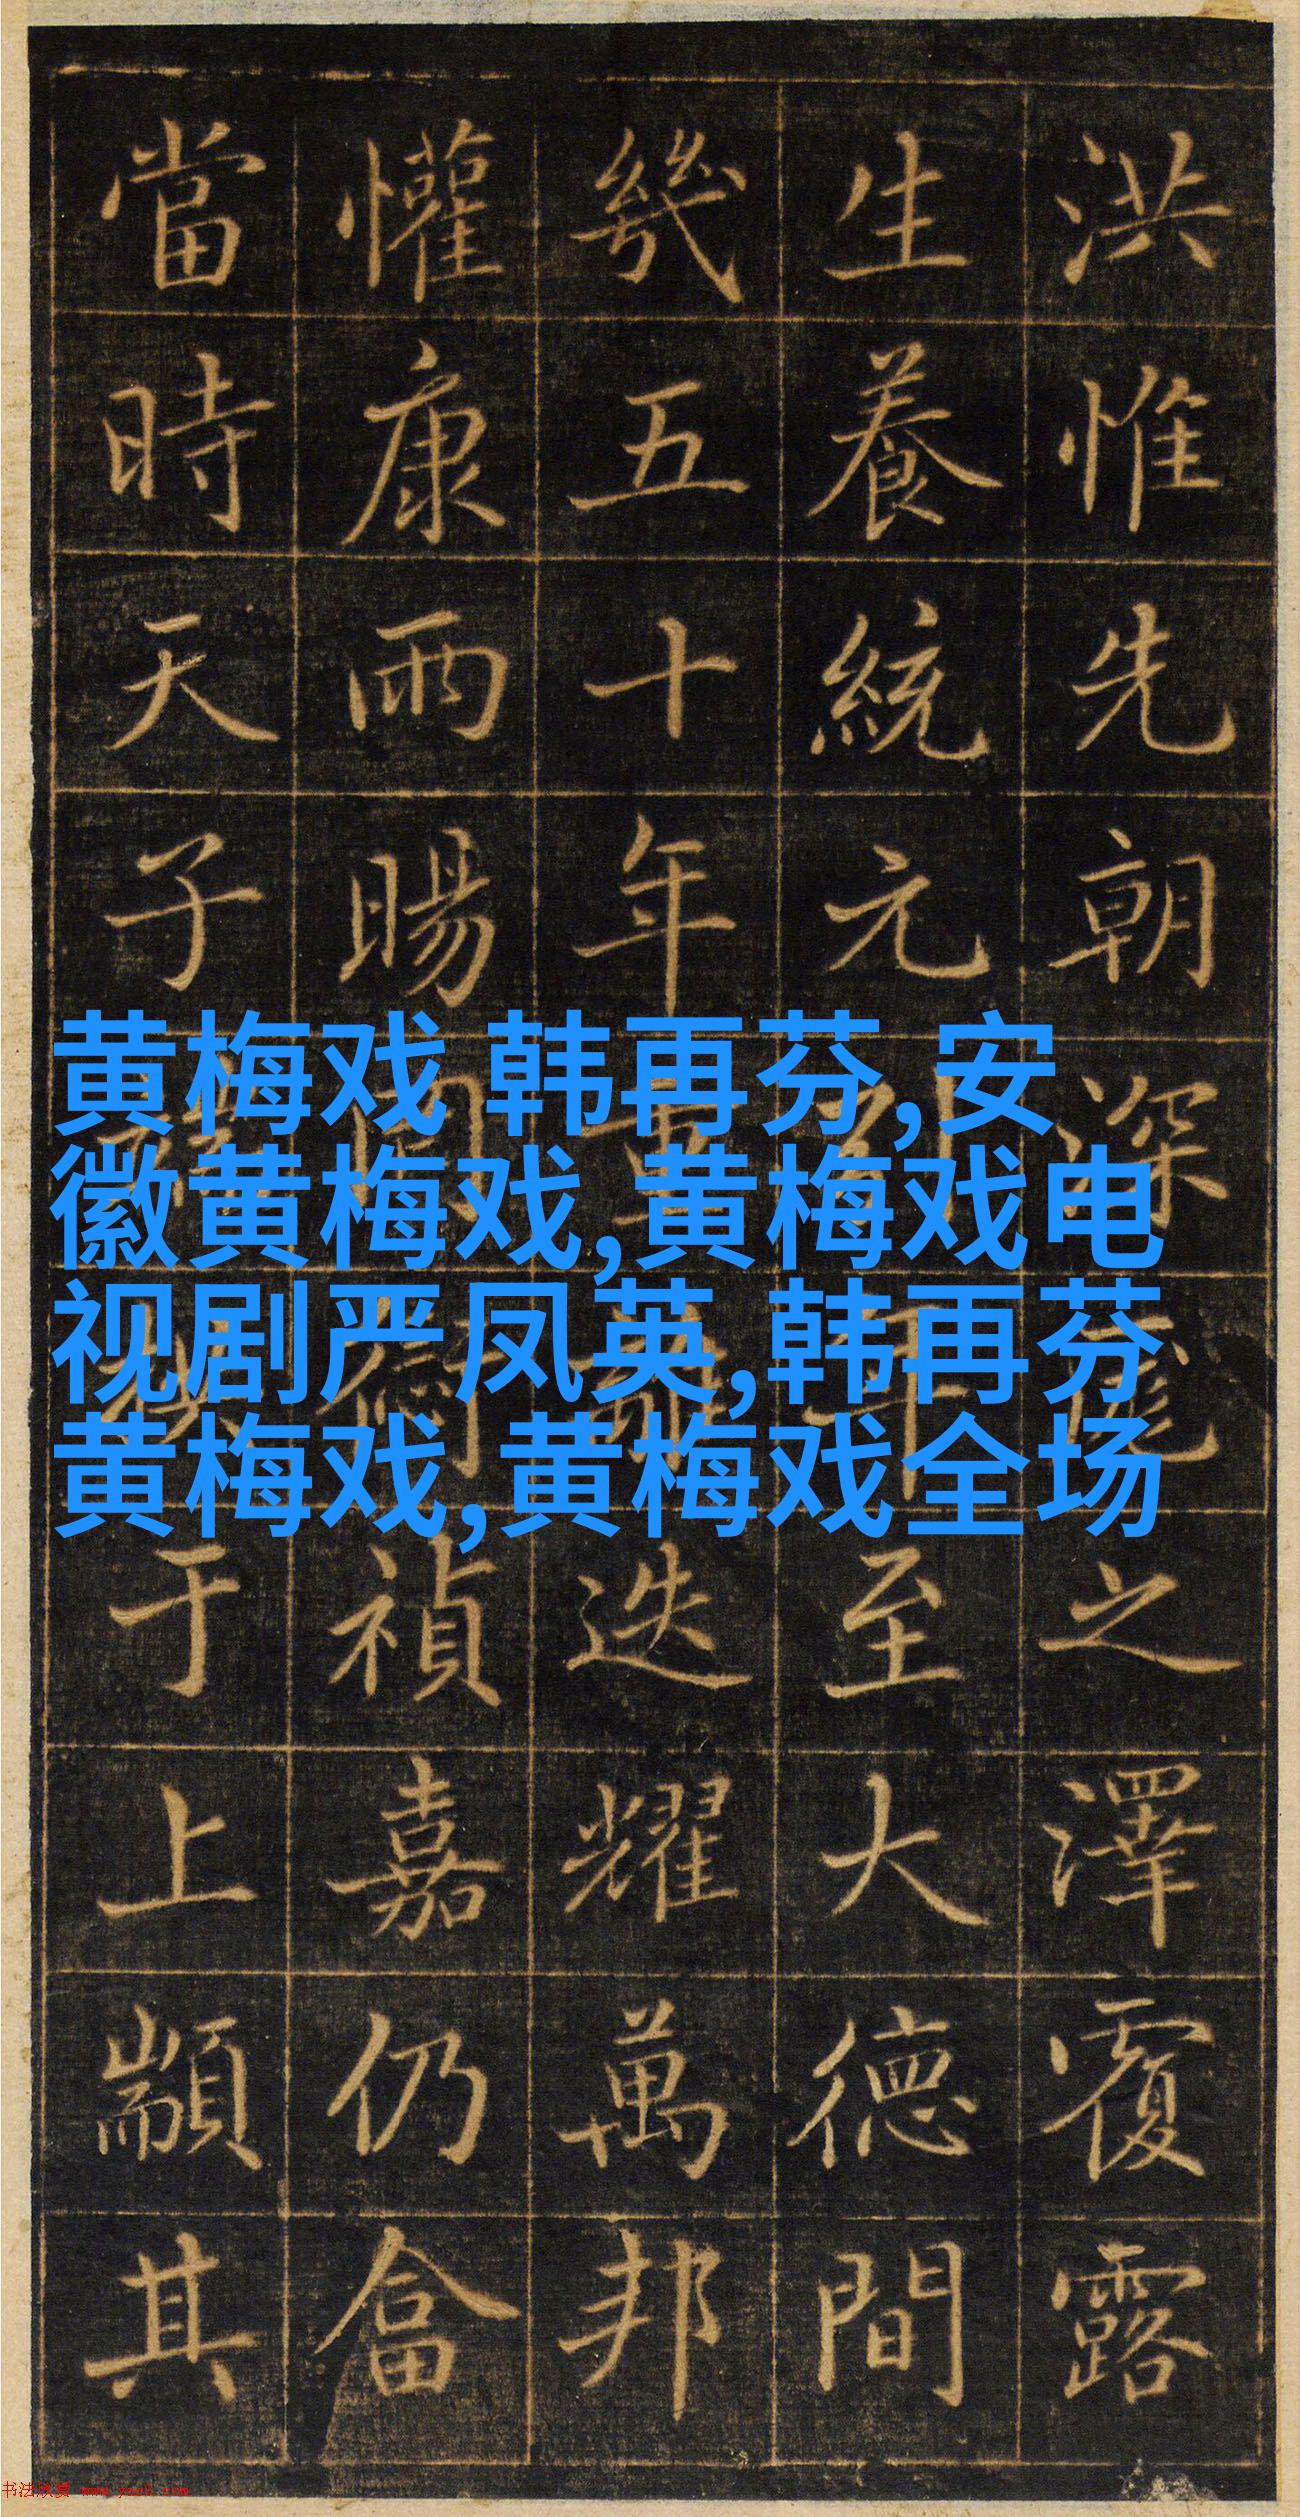 洪惟先朝深之澤覆露
生養統元至大德間
幾五十年重迭耀萬邦
懽康雨暘禎嘉仍畣
當時天子于上顓其
黄梅戏 韩再芬,安
徽黄梅戏,黄梅戏电
视剧严凤英,韩再芬
黄梅戏,黄梅戏全场
书法欣赏 www.yac8.com